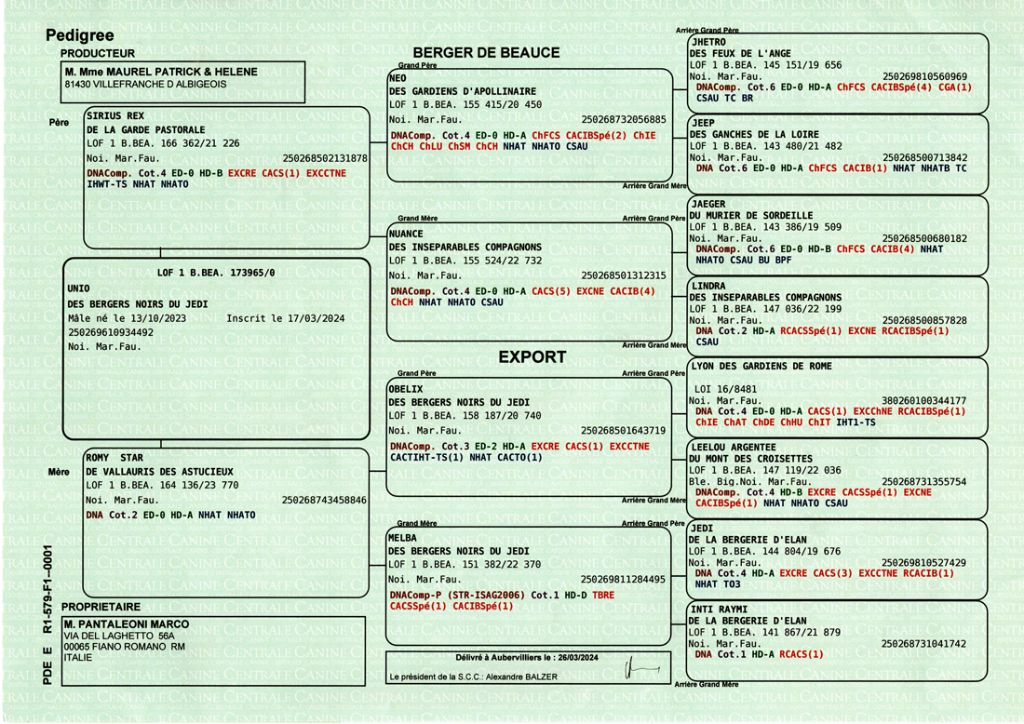 Pedigree
PRODUCTEUR
M. Mme MAUREL PATRICK & HELENE
81430 VILLEFRANCHE D ALBIGEOIS
BERGER DE BEAUCE
Père
SIRIUS REX
DE LA GARDE PASTORALE
LOF 1 B.BEA. 166 362/21 226
Noi. Mar.Fau. 250268502131878
DNAComp. Cot.4 ED-0 HD-B EXCRE CACS(1) EXCCTNE
IHWT-TS NHAT NHATO
LOF 1 B.BEA. 173965/0
UNIO
DES BERGERS NOIRS DU JEDI
Mâle né le 13/10/2023 Inscrit le 17/03/2024
250269610934492
Noi. Mar.Fau.
Mère
ROMY STAR
DE VALLAURIS DES ASTUCIEUX
LOF 1 B.BEA. 164 136/23 770
Noi. Mar.Fau. 250268743458846
DNA Cot.2 ED-0 HD-A NHAT NHATO
PDE E R1-579-F1--0001
PROPRIETAIRE
M. PANTALEONI MARCO
VIA DEL LAGHETTO 56A
00065 FIANO ROMANO RM
ITALIE
Grand Père
NEO
DES GARDIENS D'APOLLINAIRE
LOF 1 B.BEA. 155 415/20 450
Noi. Mar.Fau. 250268732056885
DNAComp. Cot.4 ED-0 HD-A ChFCS CACIBSpé(2) ChIE
ChCH ChLU ChSM ChCH NHAT NHATO CSAU
Grand Mère
NUANCE
DES INSEPARABLES COMPAGNONS
LOF 1 B.BEA. 155 524/22 732
Noi. Mar.Fau. 250268501312315
DNAComp. Cot.4 ED-0 HD-A CACS(5) EXCNE CACIB(4)
ChCH NHAT NHATO CSAU
EXPORT
Grand Père
OBELIX
DES BERGERS NOIRS DU JEDI
LOF 1 B.BEA. 158 187/20 740
Noi. Mar.Fau. 250268501643719
DNAComp. Cot.3 ED-2 HD-A EXCRE CACS(1) EXCCTNE
CACTIHT-TS(1) NHAT CACTO(1)
Grand Mère
MELBA
DES BERGERS NOIRS DU JEDI
LOF 1 B.BEA. 151 382/22 370
Noi. Mar.Fau. 250269811284495
DNAComp-P (STR-ISAG2006) Cot.1 HD-D TBRE
CACSSpé(1) CACIBSpé(1)
Délivré à Aubervilliers le : 26/03/2024
Le président de la S.C.C.: Alexandre BALZER
Arrière Grand Père
JHETRO
DES FEUX DE L'ANGE
LOF 1 B.BEA. 145 151/19 656
Noi. Mar.Fau. 250269810560969
DNAComp. Cot.6 ED-0 HD-A ChFCS CACIBSpé(4) CGA(1)
CSAU TC BR
JEEP
DES GANCHES DE LA LOIRE
LOF 1 B.BEA. 143 480/21 482
Noi. Mar.Fau. 250268500713842
DNA Cot.6 ED-0 HD-A ChFCS CACIB(1) NHAT NHATB TC
Arrière Grand Mère
Arrière Grand Père
JAEGER
DU MURIER DE SORDEILLE
LOF 1 B.BEA. 143 386/19 509
Noi. Mar.Fau. 250268500680182
DNAComp. Cot.6 ED-0 HD-B ChFCS CACIB(4) NHAT
NHATO CSAU BU BPF
LINDRA
DES INSEPARABLES COMPAGNONS
LOF 1 B.BEA. 147 036/22 199
Noi. Mar.Fau. 250268500857828
DNA Cot.2 HD-A RCACSSpé(1) EXCNE RCACIBSpé(1)
CSAU
Arrière Grand Mère
Arrière Grand Père
LYON DES GARDIENS DE ROME
LOI 16/8481
Noi. Mar.Fau. 380260100344177
DNA Cot.4 ED-0 HD-A CACS(1) EXCChNE RCACIBSpé(1)
ChIE ChAT ChDE ChHU ChIT IHT1-TS
LEELOU ARGENTEE
DU MONT DES CROISETTES
LOF 1 B.BEA. 147 119/22 036
Ble. Big.Noi. Mar.Fau. 250268731355754
DNAComp. Cot.4 HD-B EXCRE CACSSpé(1) EXCNE
CACIBSpé(1) NHAT NHATO CSAU
Arrière Grand Mère
Arrière Grand Père
JEDI
DE LA BERGERIE D'ELAN
LOF 1 B.BEA. 144 804/19 676
Noi. Mar.Fau. 250269810527429
DNA Cot.4 HD-A EXCRE CACS(3) EXCCTNE RCACIB(1)
NHAT TO3
INTI RAYMI
DE LA BERGERIE D'ELAN
LOF 1 B.BEA. 141 867/21 879
Noi. Mar.Fau. 250268731041742
DNA Cot.1 HD-A RCACS(1)
Arrière Grand Mère